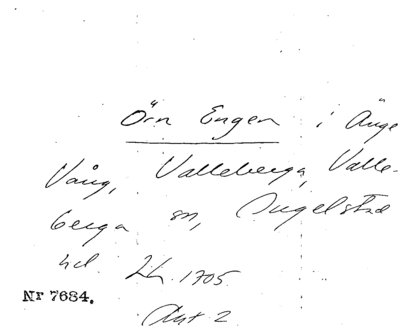 Örn Engen i Änge
Vång, Valleberga, Valle-
berga sn, Ingelstad
hd. Lk. 1705
Akt 2
Nr 7684.